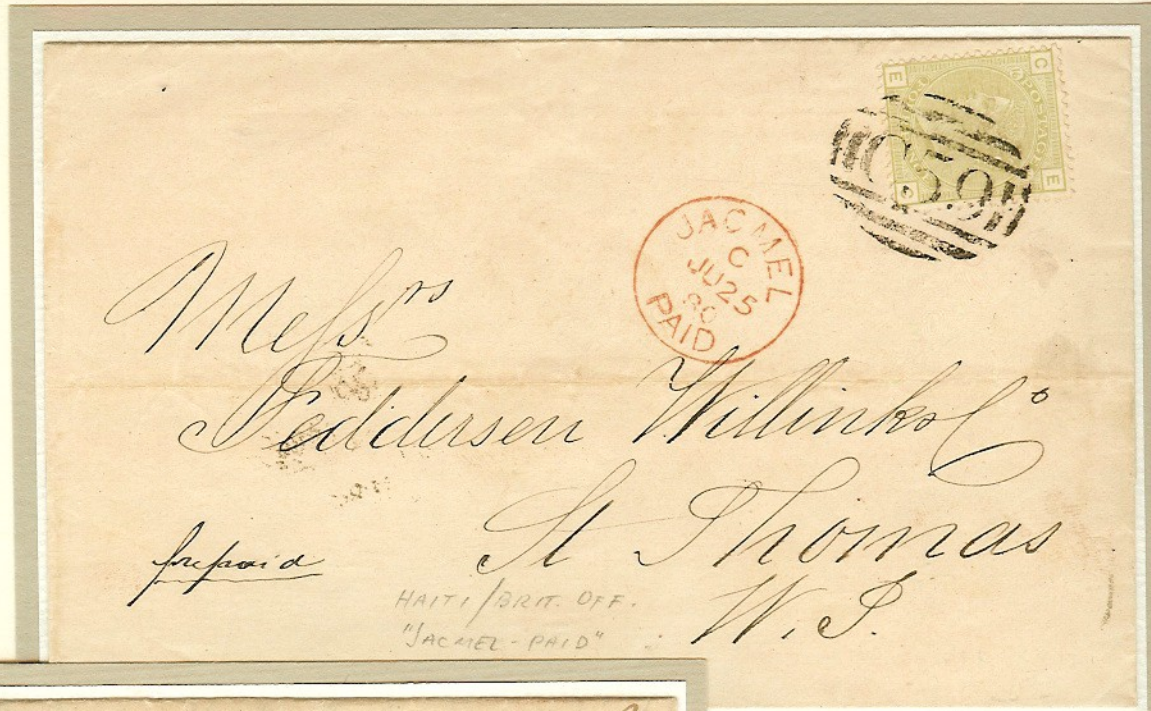 E C
POSTAG
C59
C E
JACMEL
C
JU 25
80
PAID
Messrs
Feddersen Willink & Co
St Thomas
W. I.
prepaid
HAITI/BRIT. OFF.
"JACMEL-PAID"